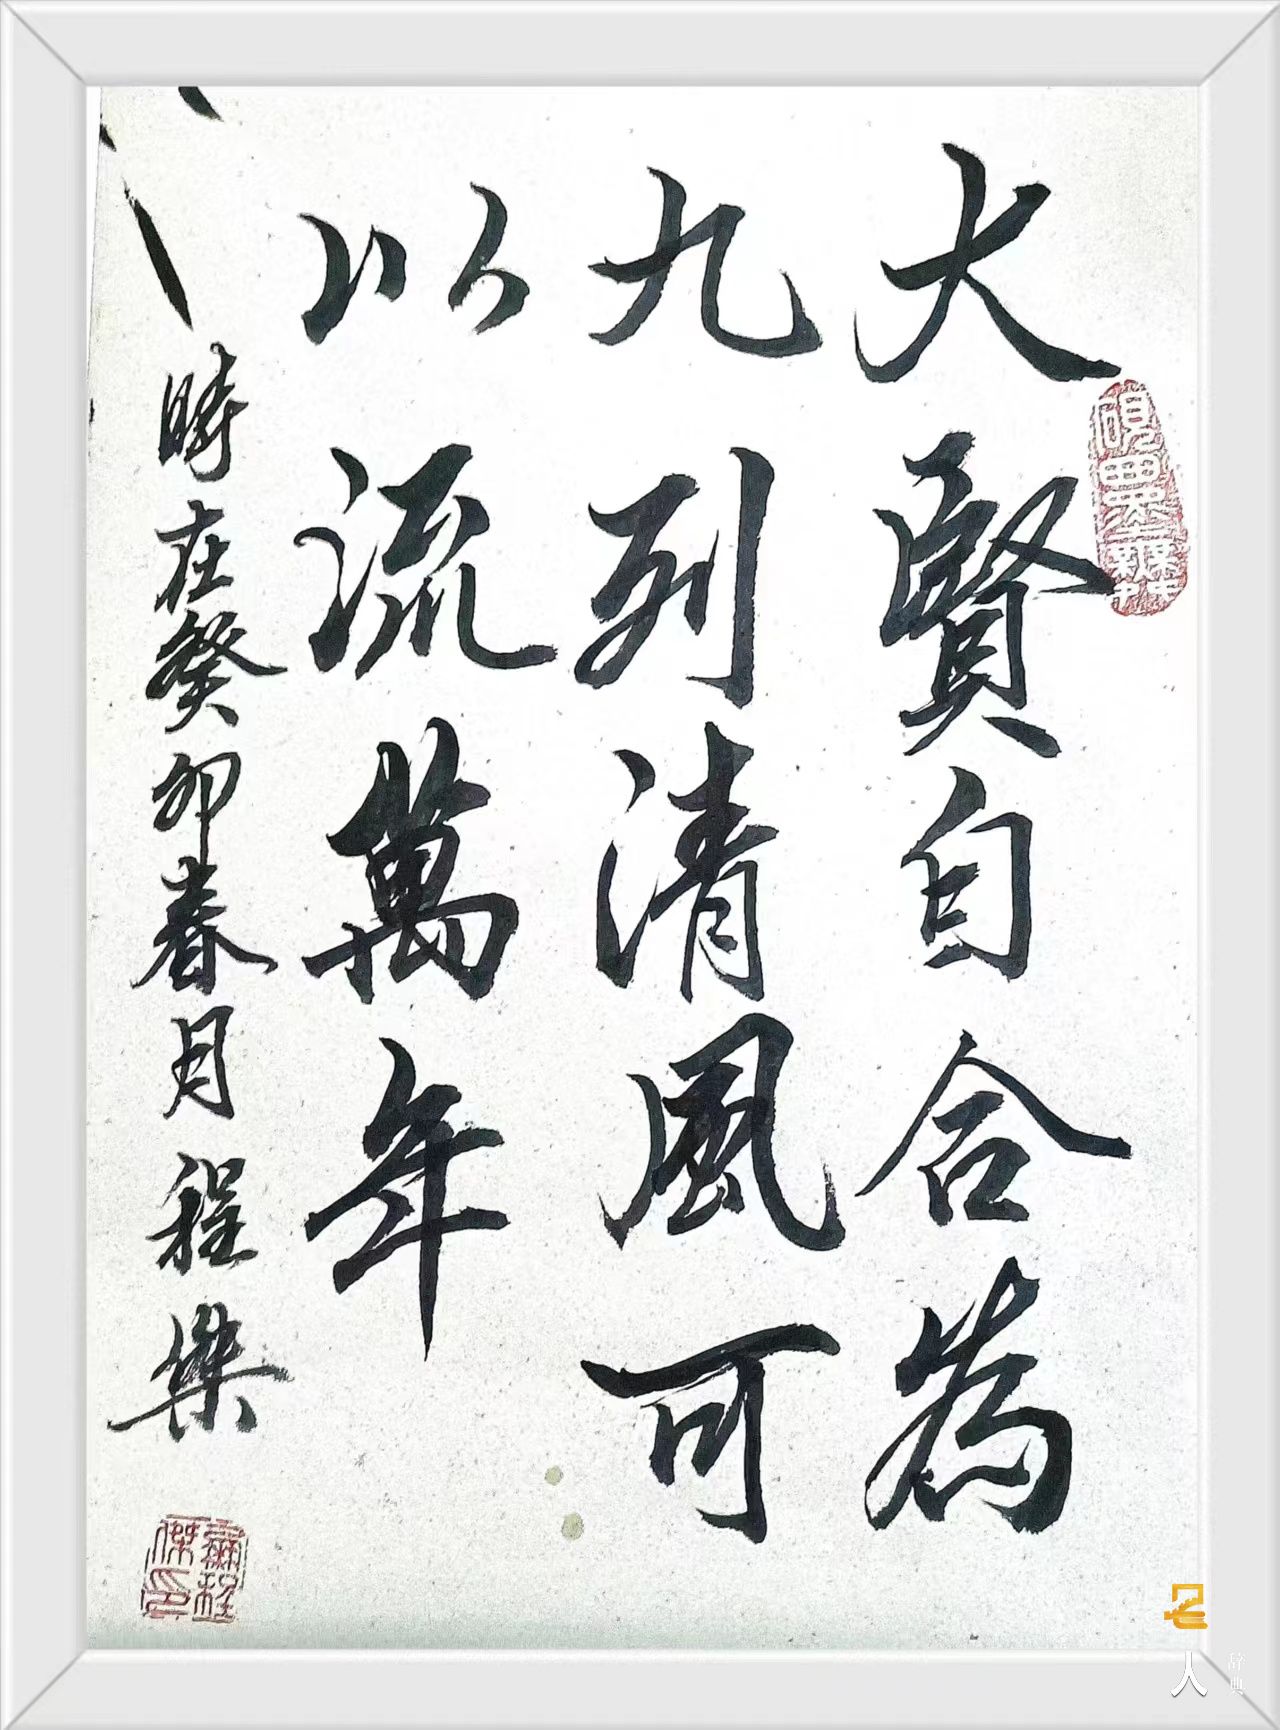 大賢自合為
九列清風可
以流萬年
時在癸卯春月程桀
名人
辞典